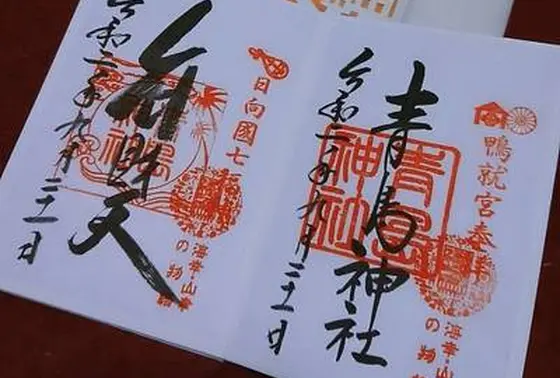 鴨就宮奉
海幸・山
の物
青島神社
青島
神社
令和二年九月二十一日
日向國七
海幸・山幸
の物語
弁財天
令和二年九月二十一日